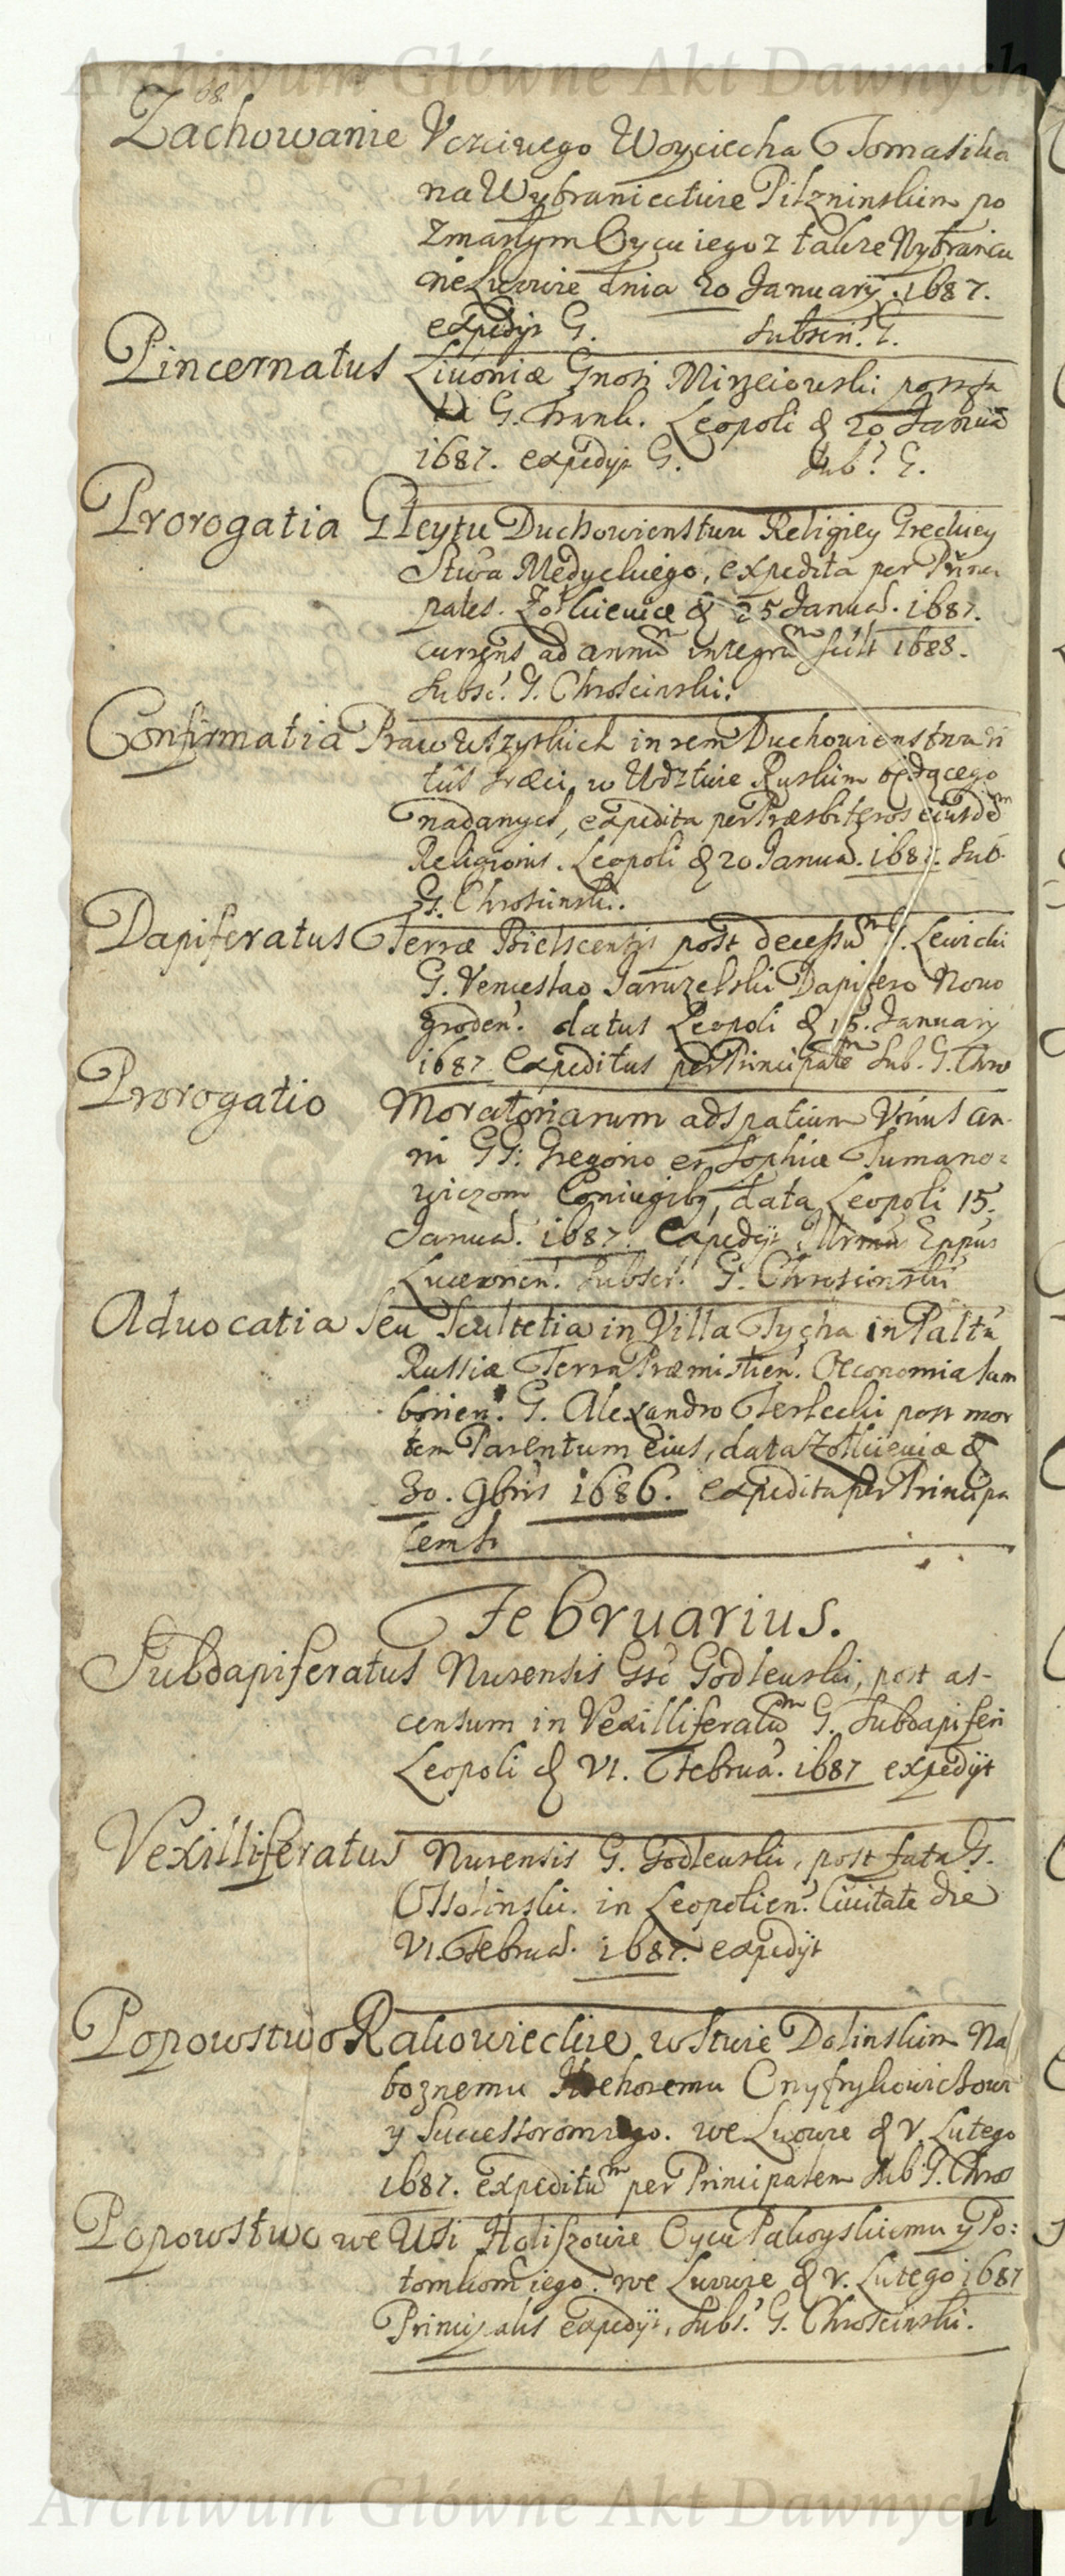 Archiwum Główne Akt Dawnych
68
Zachowanie Vczciwego Woyciecha Tomasika
na Wybraniectwie Pilzninskim po
zmarłym Oycu iego z takze Wybrańcu
we Lwowie dnia 20 January. 1687.
expedyt G. Subscr. G.
Pincernatus Livoniæ Gnosi Mirzeiowski post fa
ta G. Leopoli d. 20 Januā
1687. expedyt G. Sub. G.
Prorogatia Gleytu Duchowienstwu Religiey Greckiey
Stwa Medyckiego, expedita per Princi
pales. Zołkieviæ d. 25 Januā. 1687.
currens ad annum integrum scilt 1688.
Subsc. G. Chroscinski.
Confirmatia Praw Wszystkich in rem Duchowienstwa ri
tus Græci w Wdztwie Ruskim będącego
nadanych, expedita per Præsbiteros eiusdem
Religionis. Leopoli d. 20 Januā. 1687. Sub.
G. Chroscinski.
Dapiferatus Terræ Bielscensis post decessum G. Lewicki
G. Venceslao Jaruzelski Dapifero Novo
groden. datus Leopoli d. 15. January
1687 Expeditus per Principalem Sub. G. Chro
Prorogatio Moratoriarum ad spatium Vnius an-
ni GG: Gregorio et Sophiæ Tumano=
wiczom Coniugiby, data Leopoli 15.
Januā. 1687. Expedyt Illrmus Eppus
Luceorien. Subscr. G. Chroscinski
Aduocatia Seu Scultetia in Villa Tycha in Paltu
Russiæ Terra Præmislien. Oeconomia Sam
borien. G. Alexandro Terlecki post mor
tem Parentum eius, data Zołkieviæ d
30. 9bris 1686. expedita per Principa
lem
Februarius.
Subdapiferatus Nurensis Gso Godlewski, post as-
censum in Vexilliferatum G. Subdapiferi
Leopoli d VI. Februā. 1687 expedyt
Vexilliferatus Nurensis G. Godlewski, post fata G.
Ossolinski. in Leopolien. Civitate die
VI. Februā. 1687. expedyt
Popowstwo Rakowieckie w Stwie Dolinskim Na
boznemu Hrehoremu Onyfrykowichowi
y Successorom iego. we Lwowie d V. Lutego
1687. expeditum per Principalem Sub G. Chros
Popowstwo we Wsi Holiszowie Oycu Pakoyskiemu y Po:
tomkom iego. we Lwowie d V. Lutego 1687
Principalis expedyt, Subs. G. Chroscinski.
Archiwum Główne Akt Dawnych